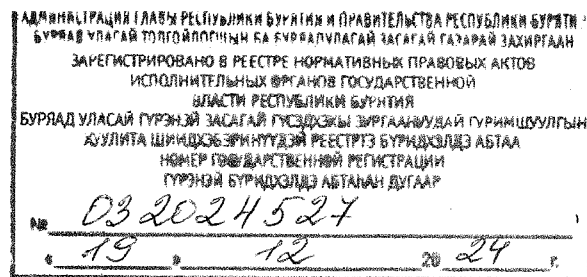 АДМИНИСТРАЦИЯ ГЛАВЫ РЕСПУБЛИКИ БУРЯТИЯ И ПРАВИТЕЛЬСТВА РЕСПУБЛИКИ БУРЯТИЯ
БУРЯАД УЛАСАЙ ТОЛГОЙЛОГШЫН БА БУРЯАД УЛАСАЙ ЗАСАГАЙ ГАЗАРАЙ ЗАХИРГААН
ЗАРЕГИСТРИРОВАНО В РЕЕСТРЕ НОРМАТИВНЫХ ПРАВОВЫХ АКТОВ
ИСПОЛНИТЕЛЬНЫХ ОРГАНОВ ГОСУДАРСТВЕННОЙ
ВЛАСТИ РЕСПУБЛИКИ БУРЯТИЯ
БУРЯАД УЛАСАЙ ГҮРЭНЭЙ ЗАСАГАЙ ГҮЙСЭДХЭХЫ ЗУРГААНУУДАЙ ГУРИМШУУЛГЫН
ХУУЛИТА ШИИДХЭБЭРИНҮҮДЭЙ РЕЕСТРТЭ БҮРИДХЭЛДЭ АБТАА
НОМЕР ГОСУДАРСТВЕННОЙ РЕГИСТРАЦИИ
ГҮРЭНЭЙ БҮРИДХЭЛДЭ АБТАҺАН ДУГААР
№ 032024527
« 19 » 12 20 24 г.